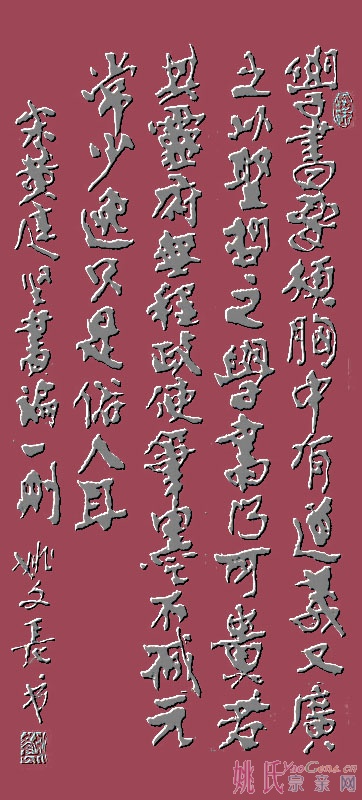 學書要須胸中有道義又廣
之以聖哲之學書乃可貴若
其靈府無程政使筆墨不減元
常少逸只是俗人耳
宋黄庭坚書論一则
姚文長书
姚氏宗亲网
YaoGens.cn